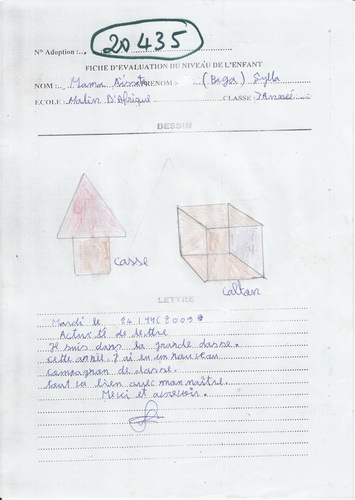 N° Adoption : 20 435
FICHE D'EVALUATION DU NIVEAU DE L'ENFANT
NOM : Mama PRENOM : (Baga) Sylla
ECOLE : Matin D'Afrique CLASSE 7Année
DESSIN
casse
caltan
LETTRE
Mardi le 24/11/2009
Activité de lettre
Je suis dans la grande classe.
cette année. J'ai eu un nouveau
compagnon de classe.
tout va bien avec mon maître.
Merci et aurevoir.